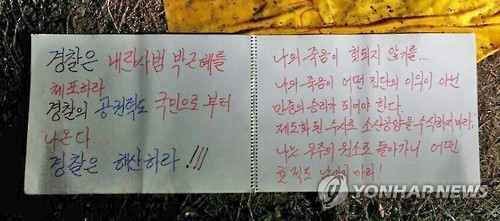 경찰은 내란사범 박근혜를
체포하라
경찰의 공권력도 국민으로부터
나온다
경찰은 해산하라!!!
나의 죽음이 헛되지 않기를...
나의 죽음이 어떤 집단의 이익이 아닌
민중의 승리가 되어야 한다.
제도화된 수사로 소신공양을 수식하지마라,
나는 우주의 원소로 돌아가니 어떤
흔적도 남기지 마라!
YONHAPNEWS